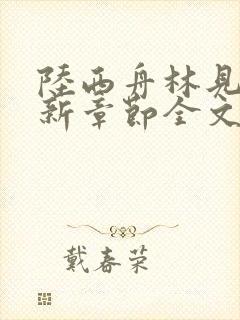 陸西舟林見
新章節全文
戴春荣